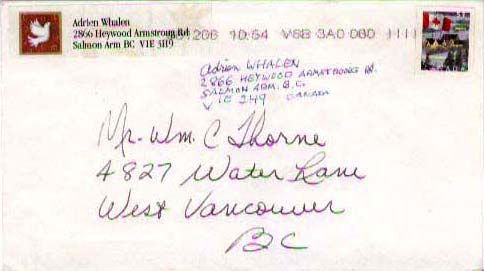 Adrien Whalen
2866 Heywood Armstrong Rd
Salmon Arm BC V1E 3H9
51206 10:54 V6B 3A0 060
Adrien WHALEN
2866 HEYWOOD ARMSTRONG Rd.
SALMON ARM. B.C.
V1E 2H9 CANADA
Mr. Wm. C Thorne
4827 Water Lane
West Vancouver
BC